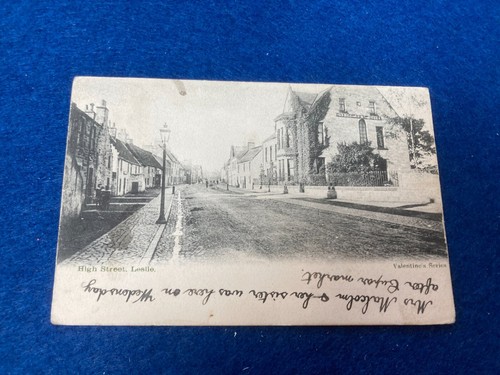 High Street, Leslie.
Valentine's Series
Mrs Malcolm & her sister was here on Wedensday
after Cupar market